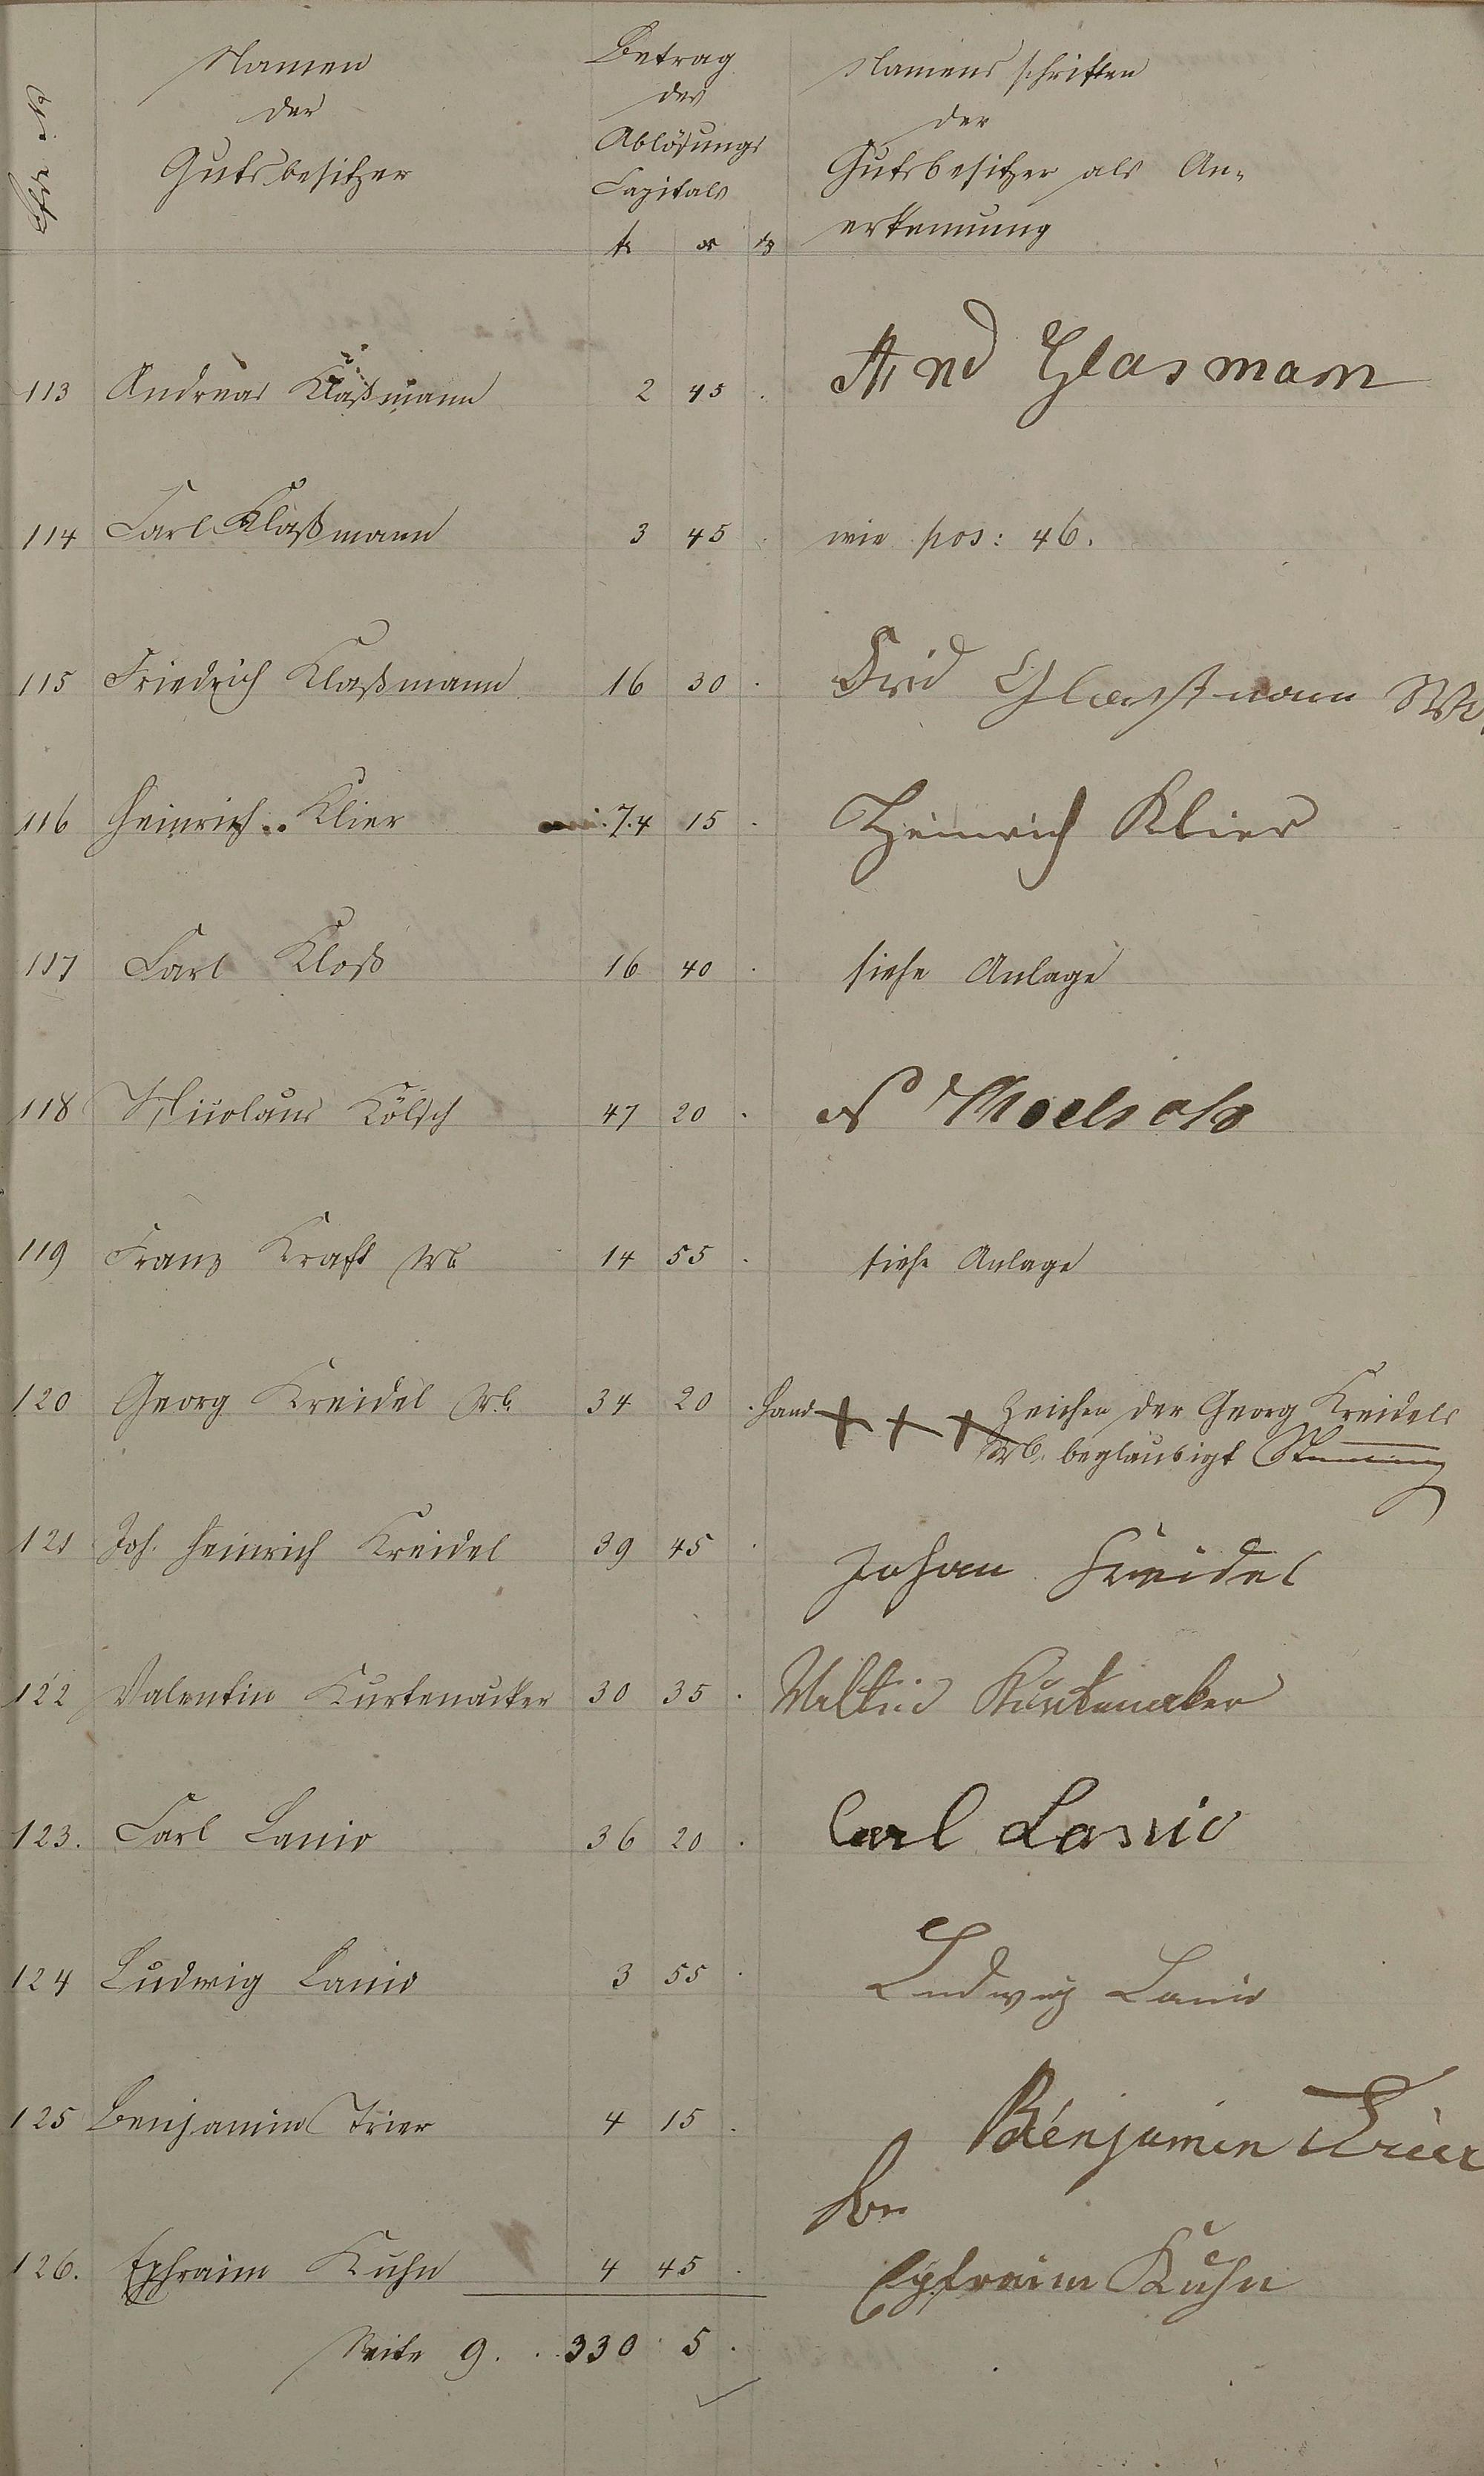 Namen
der
Gutsbesitzer
Betrag
des
Ablösungs
Capitals
fl x
Namens schriften
der
Gutsbesitzer als An-
erkennung
113 Andreas Klaßmann 2 45 . And Glasmann
114 Carl Klaßmann 3 45 . wie pos: 46.
115 Friedrich Klaßmann 16 30 . Frid Glaßmann
116 Heinrich Klier 74 15 . Heinrich Klier
117 Carl Kloß 16 40 . siehe Anlage
118 Nicolaus Kölsch 47 20 . N
119 Franz Kraft Wb 14 55 . siehe Anlage
120 Georg Kreidel Wb. 34 20 . Hand +++ Zeichen der Georg Kreidels
Wb. beglaubigt
121 Joh. Heinrich Kreidel 39 45 . Johan Kreidel
122 Valentin Kurtenacker 30 35 . Kurtenacker
123. Carl Lanio 36 20 . Carl Lanio
124 Ludwig Lanio 3 55 . Ludwig Lanio
125 Benjamin Trier 4 15 . Bénjamin Trier
126. Ephraim Kuhn 4 45 . Ephraim Kuhn
Seite 9. . 330 5 .